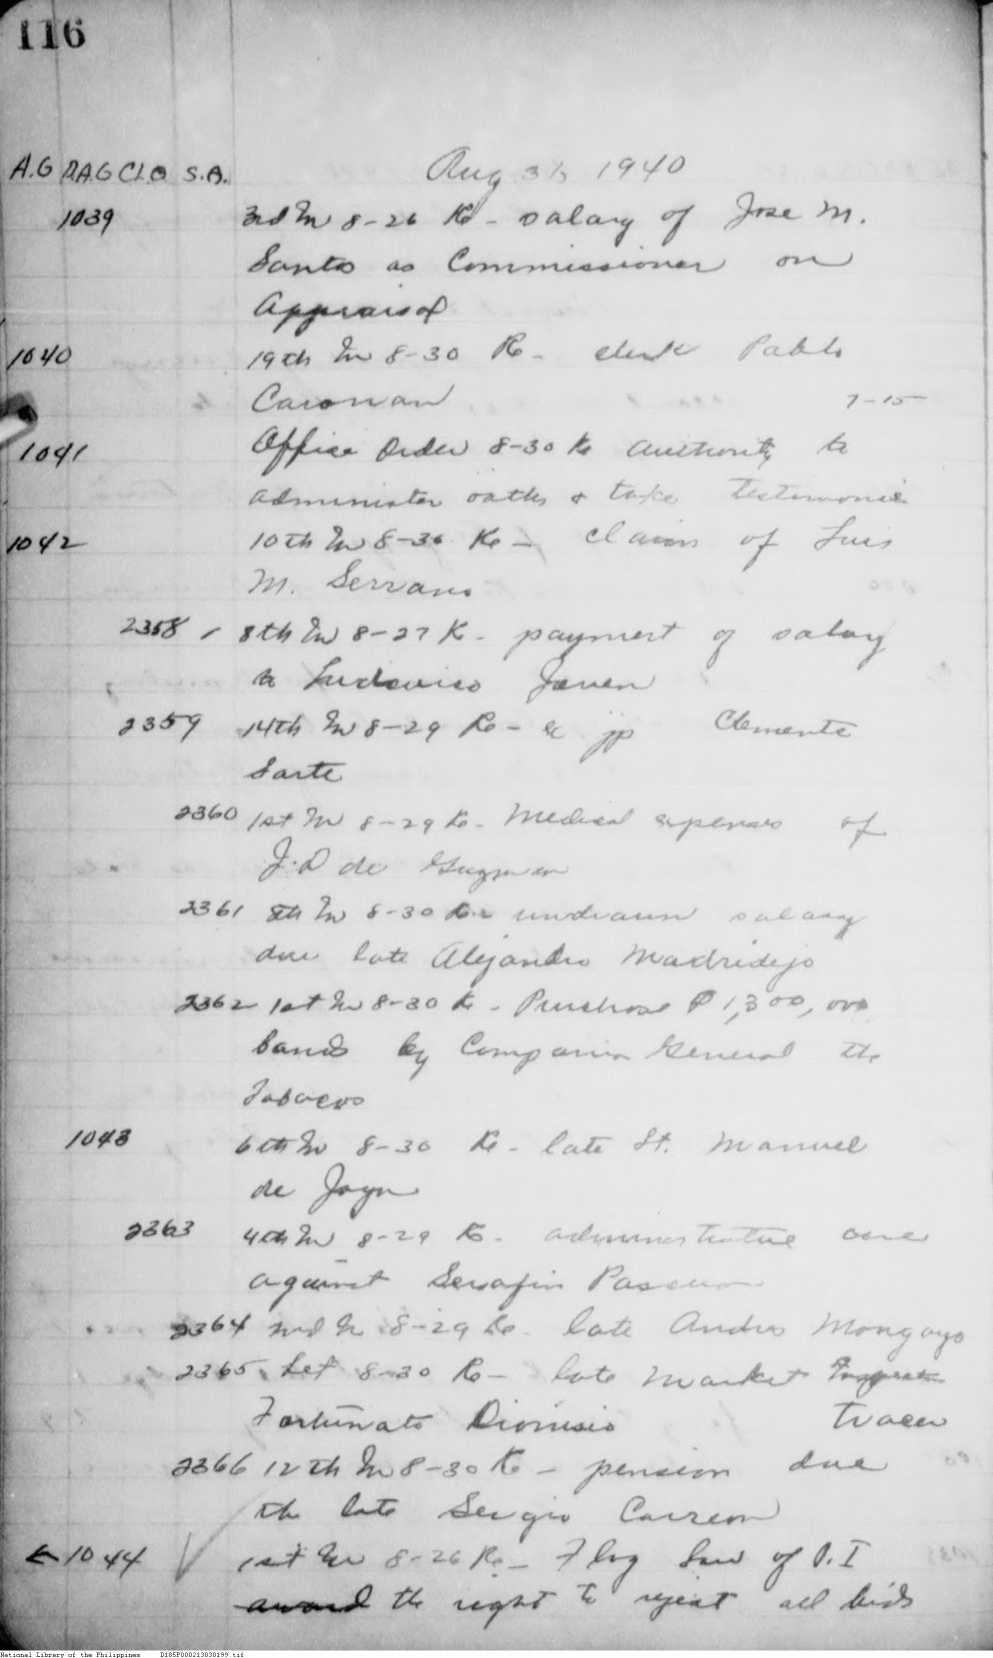 116
A.G D.A.G C.L.O S.A. Aug 31, 1940
1039 3rd In 8-26 Re - salary of Jose M.
Santos as Commissioner on
Appraisal
1040 19th In 8-30 Re - clerk Pablo
Caronan 7-15
1041 Office Order 8-30 Re authority to
administer oaths & take testimonies
1042 10th In 8-30 Re - claim of Luis
M. Serrano
2358 8th In 8-27 Re - payment of salary
to Ludovico Javen
2359 14th In 8-29 Re - jp Clemente
Sarte
2360 1st In 8-29 Re - Medical expenses of
J. D de Guzman
2361 8th In 8-30 Re undrawn salary
due late Alejandro Madridejo
2362 1st In 8-30 Re - Purchase ₱ 1,300,000
bonds by Compania General de
Tabacos
1043 6th In 8-30 Re - late Lt. Manuel
de Joya
2363 4th In 8-29 Re - administrative case
against Serafin Pascua
2364 2nd In 8-29 Re - late Andres Mongayo
2365 Let 8-30 Re - late Market
Fortunato Dionisio
2366 12th In 8-30 Re - pension due
the late Sergio Carreon
1044 1st In 8-26 Re - Flag Law of P. I
award the right to reject all bids
National Library of the Philippines D185P000213030199.tif